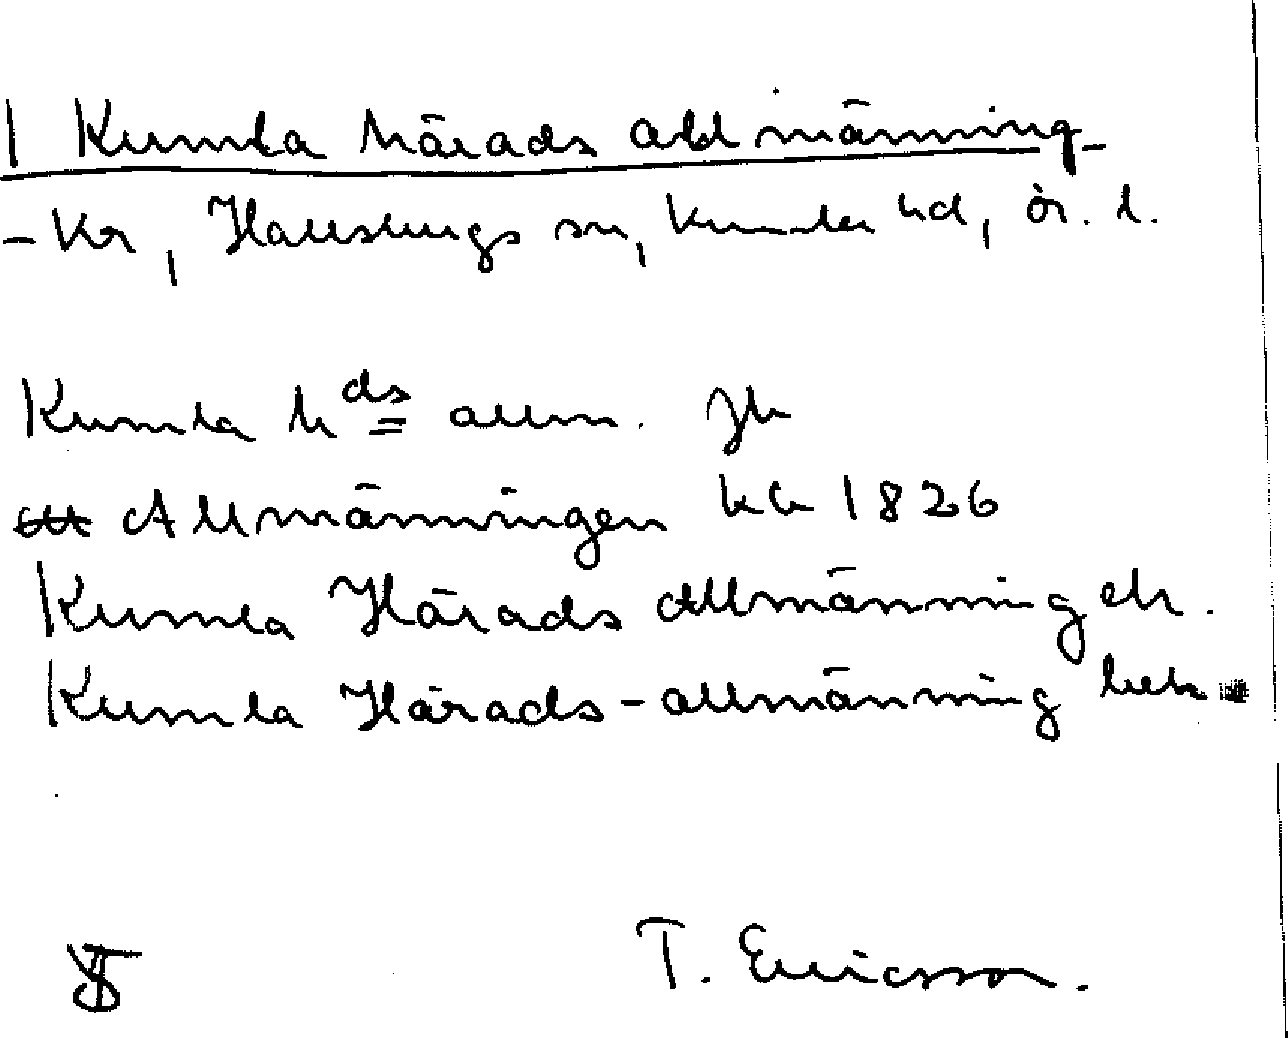 1 Kumla härads allmänning
- Kr, Hallsbergs sn, Kumla hd, ör. l.
Kumla hds allm. Jb
Allmänningen kb 1826
Kumla Härads Allmänning ek.
Kumla Härads-allmänning hek
T. Ericsson.